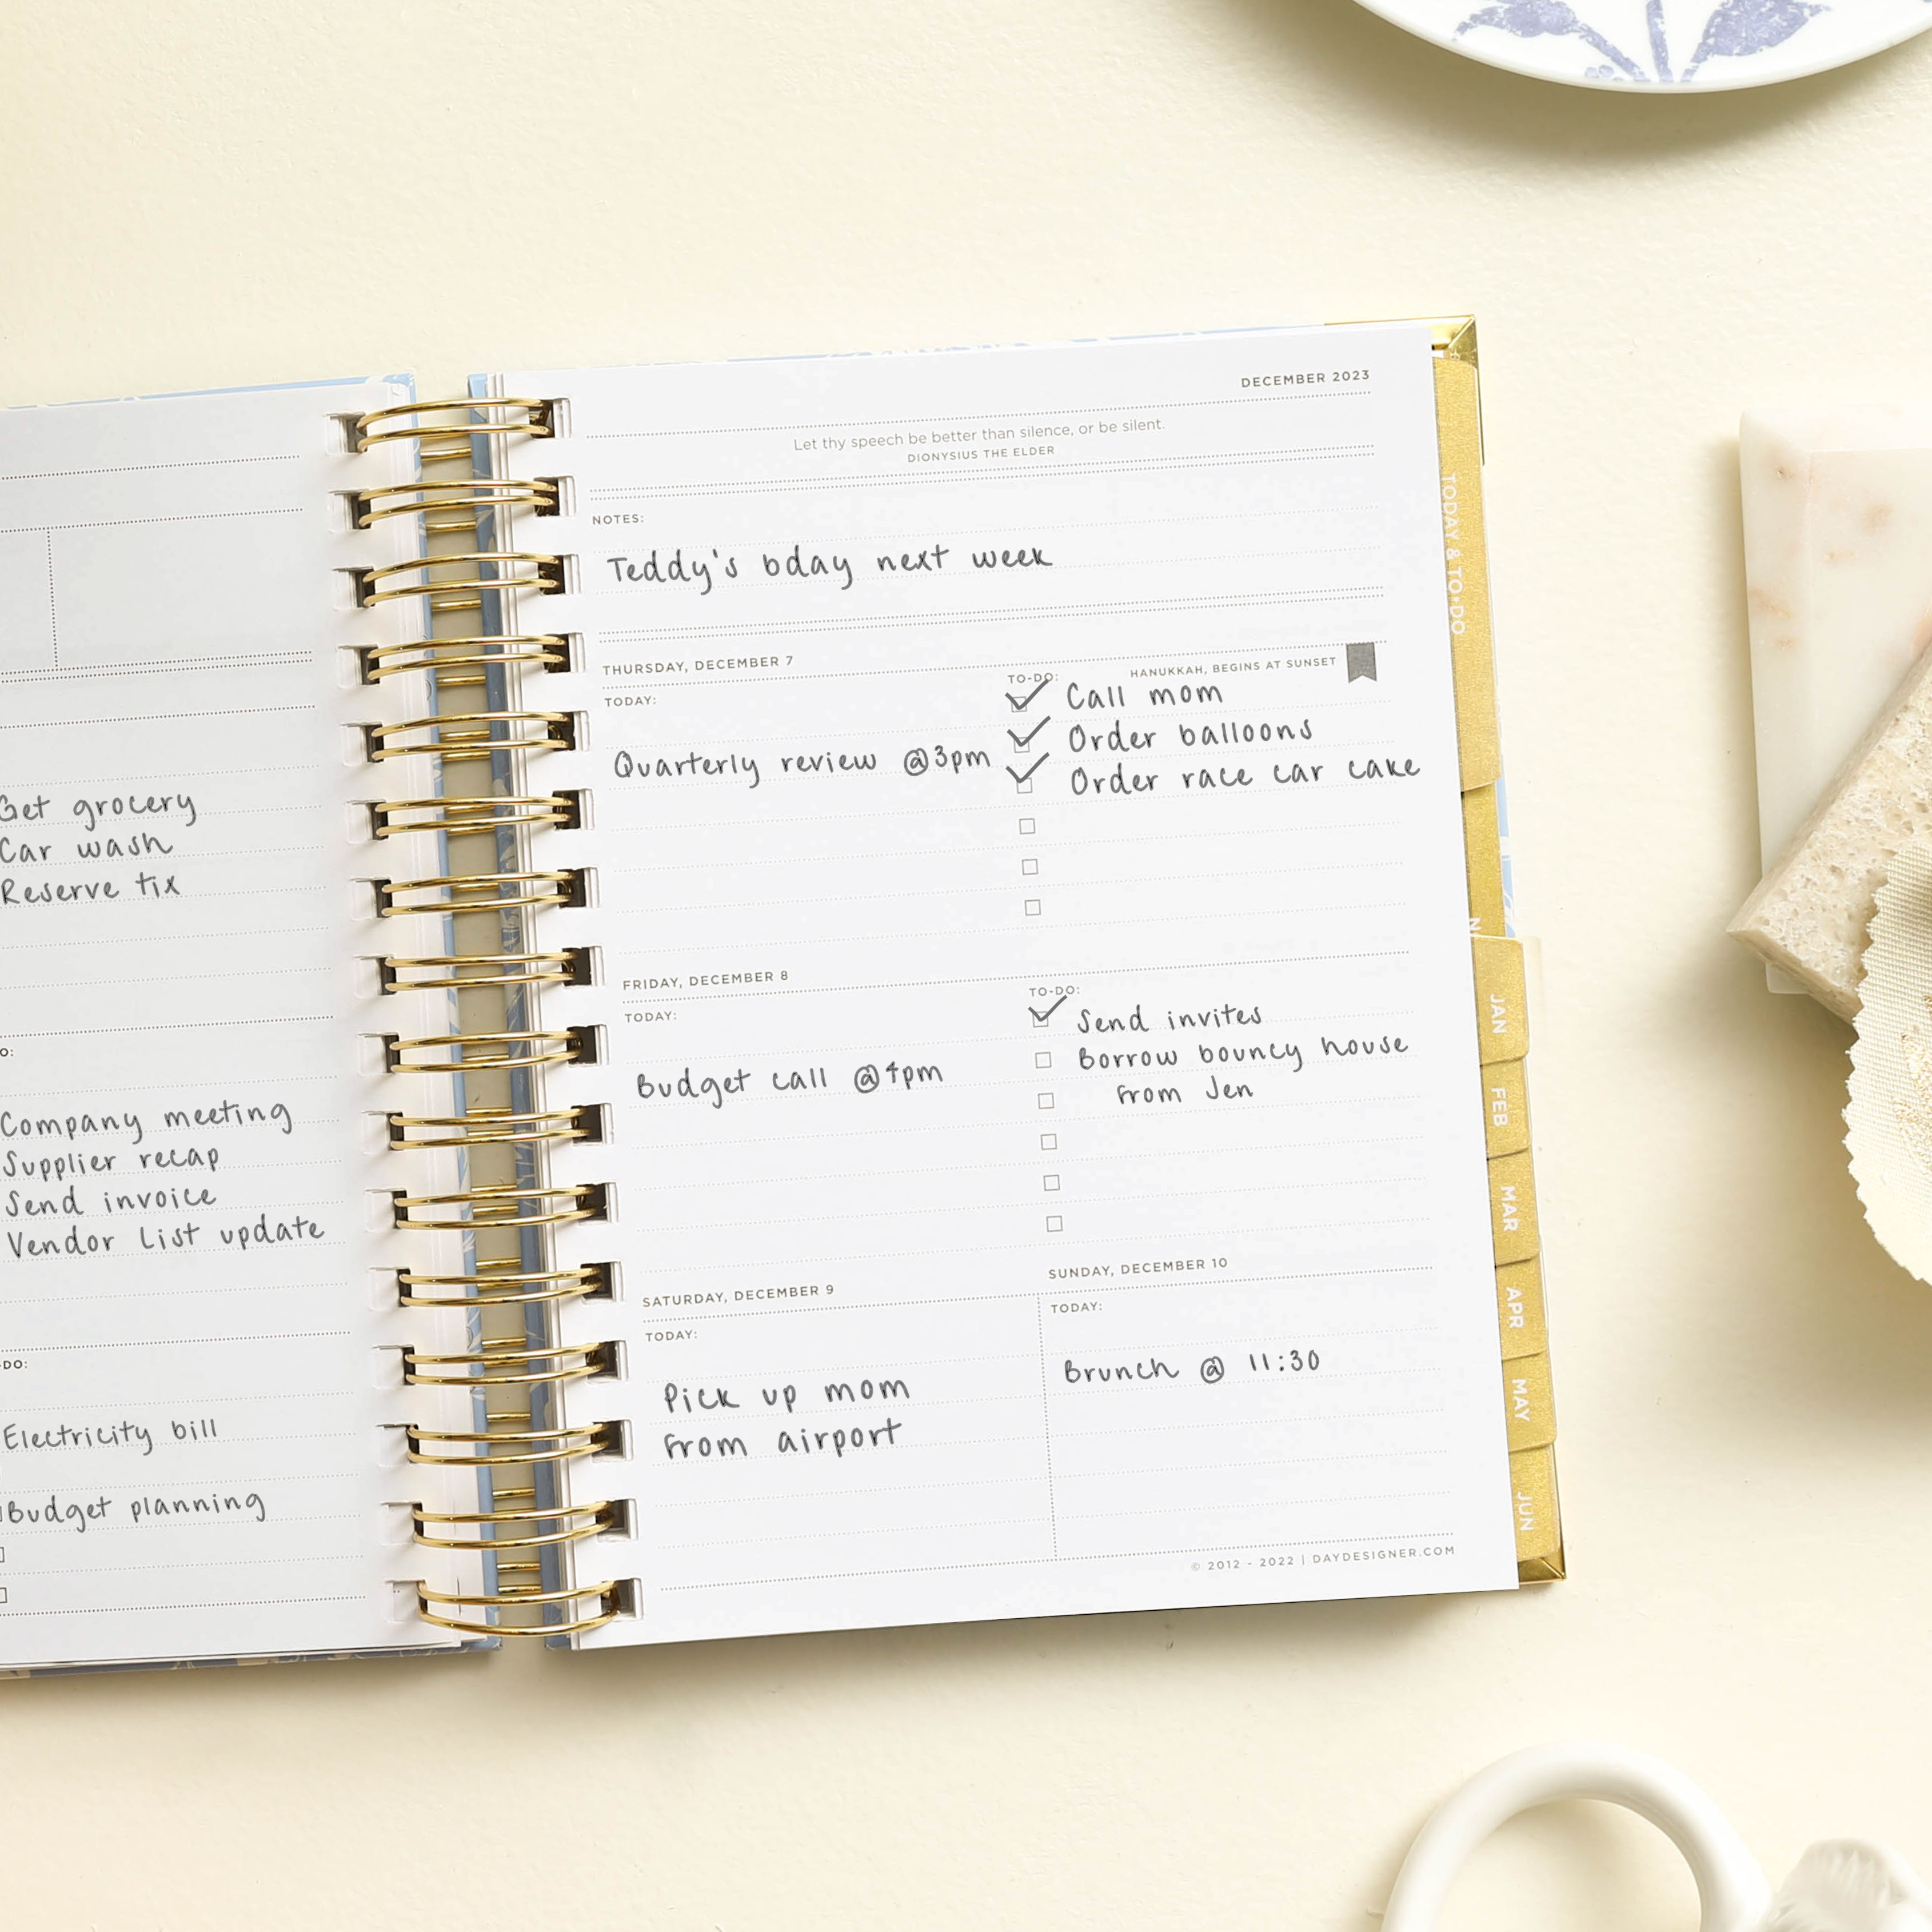 Get grocery
Car wash
Reserve tix
Company meeting
Supplier recap
Send invoice
Vendor List update
-DO:
Electricity bill
Budget planning
DECEMBER 2023
Let thy speech be better than silence, or be silent.
DIONYSIUS THE ELDER
NOTES:
Teddy's bday next week
THURSDAY, DECEMBER 7
HANUKKAH, BEGINS AT SUNSET
TODAY:
Quarterly review @3pm
TO-DO:
Call mom
Order balloons
Order race car cake
FRIDAY, DECEMBER 8
TODAY:
Budget call @4pm
TO-DO:
Send invites
Borrow bouncy house
from Jen
SATURDAY, DECEMBER 9
TODAY:
Pick up mom
from airport
SUNDAY, DECEMBER 10
TODAY:
Brunch @ 11:30
© 2012 - 2022 | DAYDESIGNER.COM
TODAY & TO-DO
JAN
FEB
MAR
APR
MAY
JUN